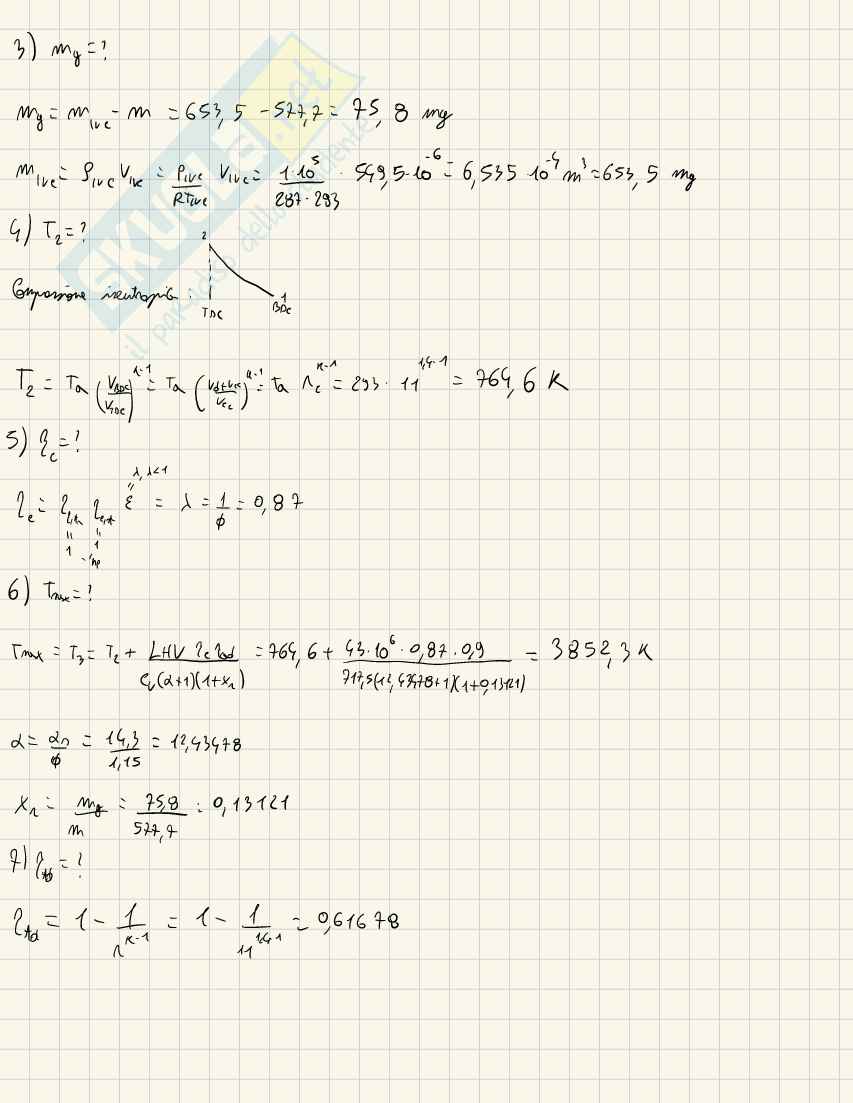 3) mg = ?
mg = m_IVC - m = 653,5 - 577,7 = 75,8 mg
m_IVC = ρ_IVC V_IVC = P_IVC/(R T_IVC) V_IVC = 1·10^5/(287·293) · 549,5·10^-6 = 6,535·10^-4 m^3 = 653,5 mg
4) T2 = ?
2
Compressione isentropica :
1
TDC BDC
T2 = Ta (V_BDC/V_TDC)^(k-1) = Ta ((Vd+Vcc)/Vcc)^(k-1) = Ta rc^(k-1) = 293 · 11^(1,4-1) = 764,6 K
5) ηc = ?
λ, λ<1
ηc = ε = λ = 1/φ = 0,87
1 1
6) Tmax = ?
Tmax = T3 = T2 + LHV ηc ηad/(cv(α+1)(1+xr)) = 764,6 + 43·10^6·0,87·0,9/(717,5(12,43478+1)(1+0,13121)) = 3852,3 K
α = αs/φ = 14,3/1,15 = 12,43478
xr = mg/m = 75,8/577,7 = 0,13121
7) ηtd = ?
ηtd = 1 - 1/r^(k-1) = 1 - 1/11^(1,4-1) = 0,61678
SKUOLA.net
il paradiso dello studente